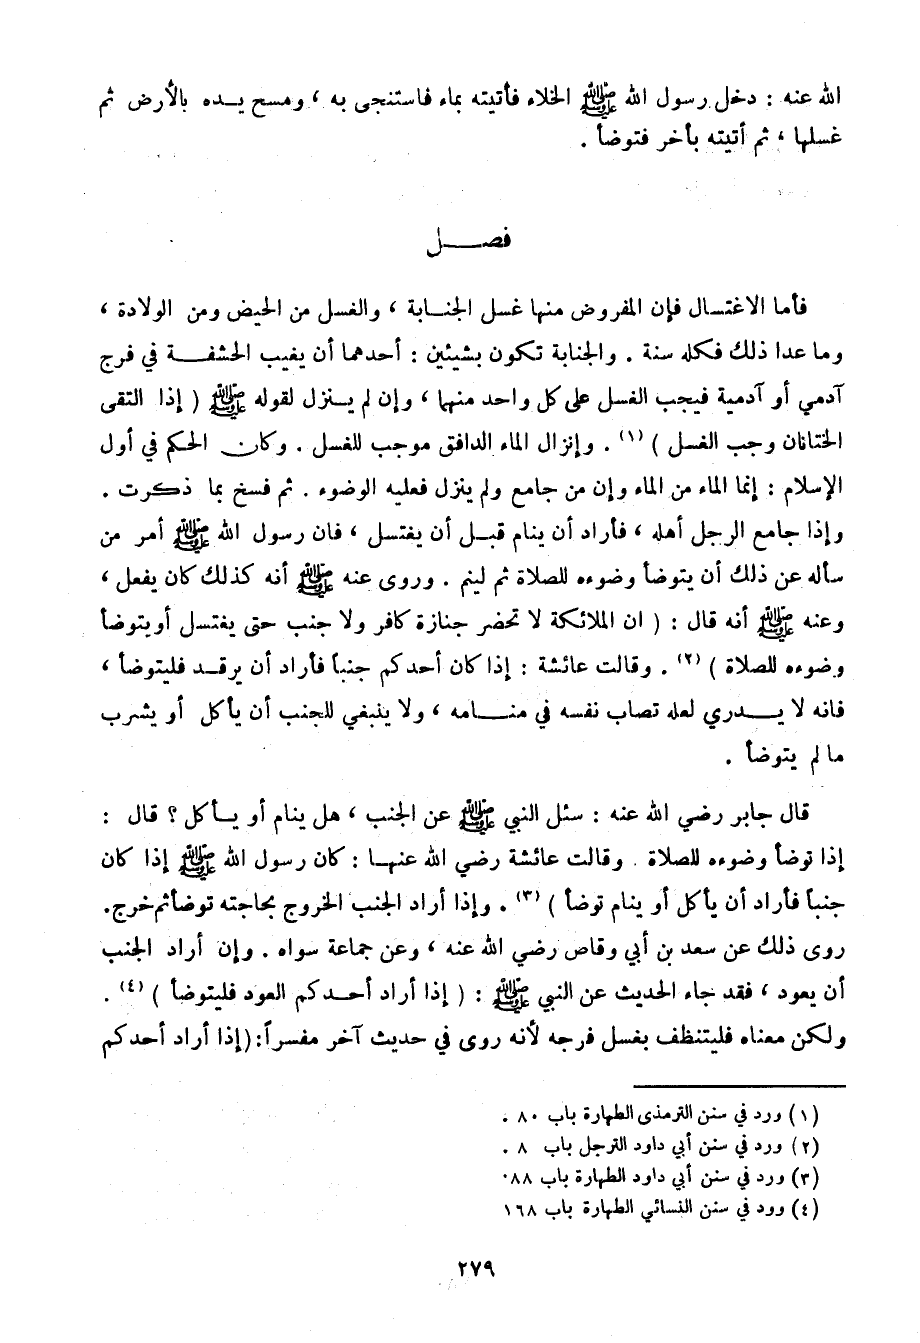 الله عنه : دخل رسول الله ﷺ الخلاء فأتيته بماء فاستنجى به ، ومسح يـده بالأرض ثم
غسلها ، ثم أتيته بأخر فتوضأ .
فصـــل
فأما الاغتسال فإن المفروض منها غسل الجنـابة ، والغسل من الحيض ومن الولادة ،
وما عدا ذلك فكله سنة . والجنابة تكون بشيئين : أحدهما أن يغيب الحشفـــة في فرج
آدمي أو آدمية فيجب الغسل على كل واحد منهما ، وإن لم يـنزل لقوله ﷺ ( إذا التقى
الختانان وجب الغسل ) (١) . وإنزال الماء الدافق موجب للغسل . وكان الحكم في أول
الإسلام : إنما الماء من الماء وإن من جامع ولم ينزل فعليه الوضوء . ثم فسخ بما ذكرت .
وإذا جامع الرجل أهله ، فأراد أن ينام قبـل أن يغتسل ، فان رسول الله ﷺ أمر من
سأله عن ذلك أن يتوضأ وضوءه للصلاة ثم لينم . وروى عنه ﷺ أنه كذلك كان يفعل ،
وعنه ﷺ أنه قال : ( ان الملائكة لا تحضر جنازة كافر ولا جنب حتى يغتسل أو يتوضأ
وضوءه للصلاة ) (٢) . وقالت عائشة : إذا كان أحدكم جنباً فأراد أن يرقـد فليتوضأ ،
فانه لا يـــدري لعله تصاب نفسه في منـــامه ، ولا ينبغي للجنب أن يأكل أو يشرب
ما لم يتوضأ .
قال جابر رضي الله عنه : سئل النبي ﷺ عن الجنب ، هل ينام أو يـأكل ؟ قال :
إذا توضأ وضوءه للصلاة . وقالت عائشة رضي الله عنهـا : كان رسول الله ﷺ إذا كان
جنباً فأراد أن يأكل أو ينام توضأ ) (٣) . وإذا أراد الجنب الخروج بحاجته توضأ ثم خرج.
روى ذلك عن سعد بن أبي وقاص رضي الله عنه ، وعن جماعة سواه . وإن أراد الجنب
أن يعود ، فقد جاء الحديث عن النبي ﷺ : ( إذا أراد أحـدكم العود فليتوضأ ) (٤) .
ولكن معناه فليتنظف بغسل فرجه لأنه روى في حديث آخر مفسراً: (إذا أراد أحدكم
(١) ورد في سنن الترمذى الطهارة باب ٨٠ .
(٢) ورد في سنن أبي داود الترجل باب ٨ .
(٣) ورد في سنن أبي داود الطهارة باب ٨٨.
(٤) وود في سنن النسائي الطهارة باب ١٦٨
٢٧٩